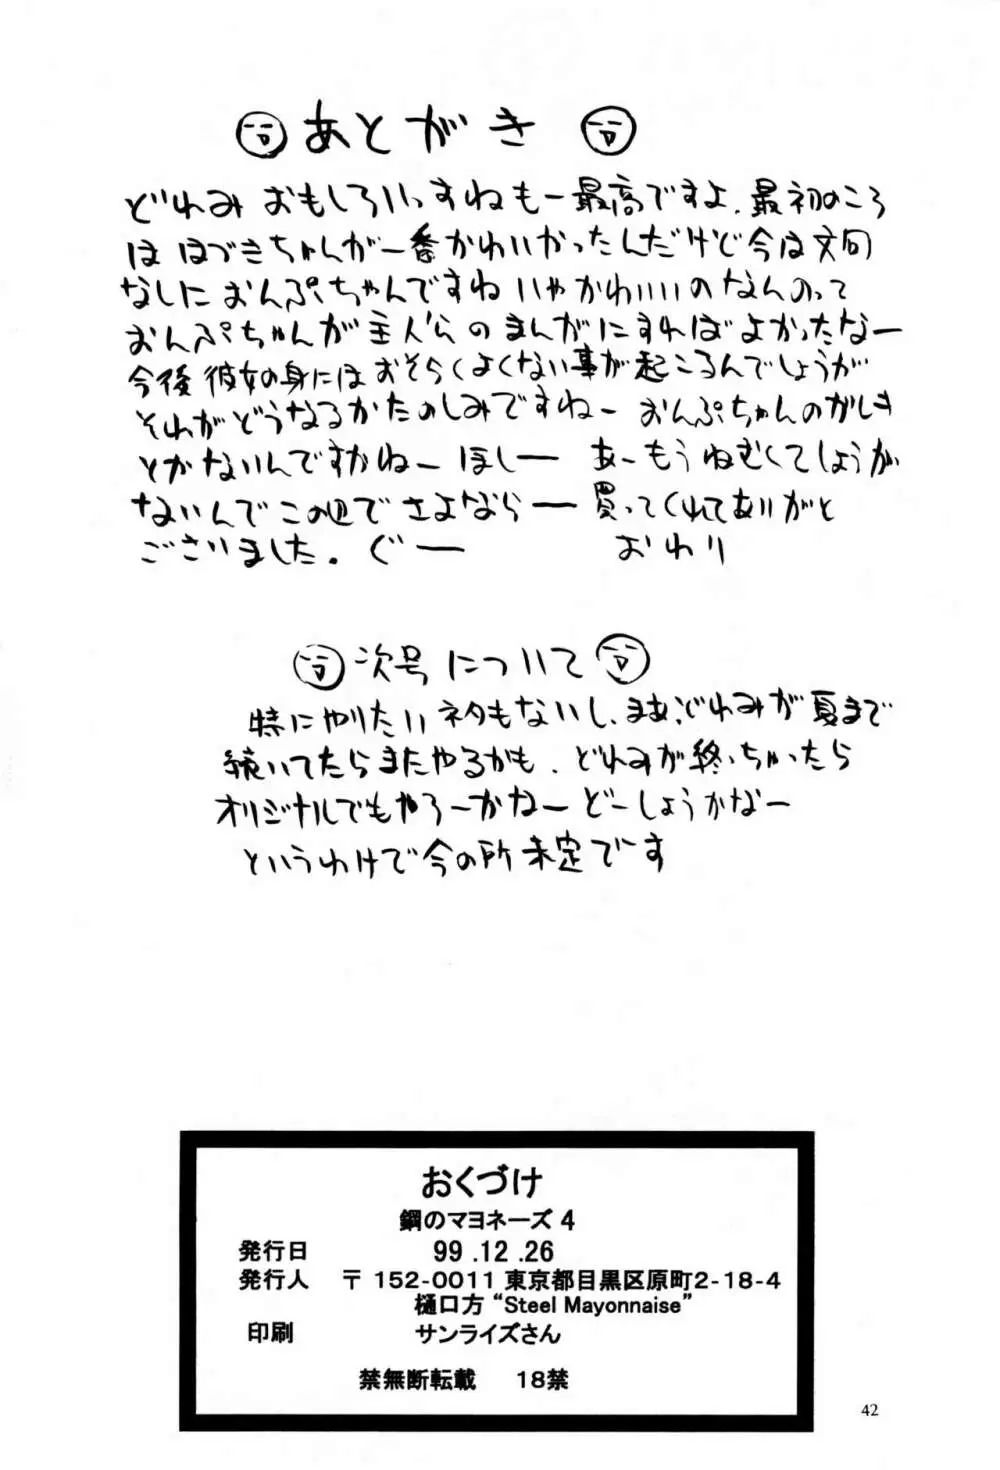 あとがき
どれみ おもしろいっすねもー最高ですよ. 最初のころ
は はづきちゃんが一番かわいかったんだけど今は文句
なしに おんぷちゃんですね いやかわいいのなんのって
おんぷちゃんが主人公のまんがにすればよかったなー
今後 彼女の身にはおそらくよくない事が起こるんでしょうが
それがどうなるかたのしみですねー おんぷちゃんのがしき
とかないんですかねー ほしー あーもうねむくてしょうが
ないんでこの辺でさよならー 買ってくれてありがと
ございました. ぐー おわり
次号について
特にやりたいネタもないし、まあ、どれみが夏まで
続いてたらまたやるかも. どれみが終っちゃったら
オリジナルでもやろーかなー どーしょうかなー
というわけで今の所未定です
おくづけ
鋼のマヨネーズ 4
発行日 99.12.26
発行人 〒152-0011 東京都目黒区原町2-18-4
樋口方 “Steel Mayonnaise”
印刷 サンライズさん
禁無断転載 18禁
42